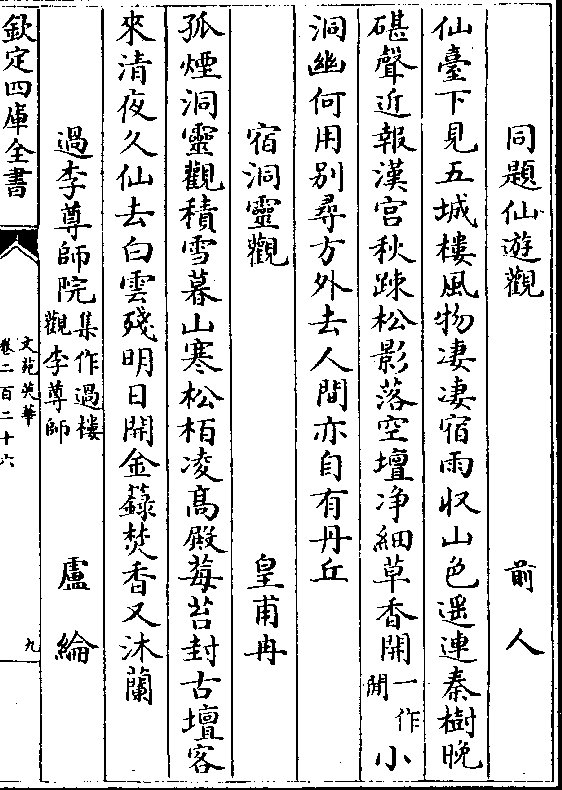 同題仙遊觀　前人
仙臺下見五城樓風物凄凄宿雨収山色遥連秦樹晚
碪聲近報漢宫秋踈松影落空壇净細草香開一作閒小
洞幽何用别尋方外去人間亦自有丹丘
宿洞靈觀　皇甫冉
孤煙洞靈觀積雪暮山寒松栢凌髙殿莓苔封古壇客
來清夜久仙去白雲殘明日開金籙焚香又沐蘭
過李尊師院集作過樓觀李尊師　盧綸
欽定四庫全書
文苑英華
卷二百二十六
九